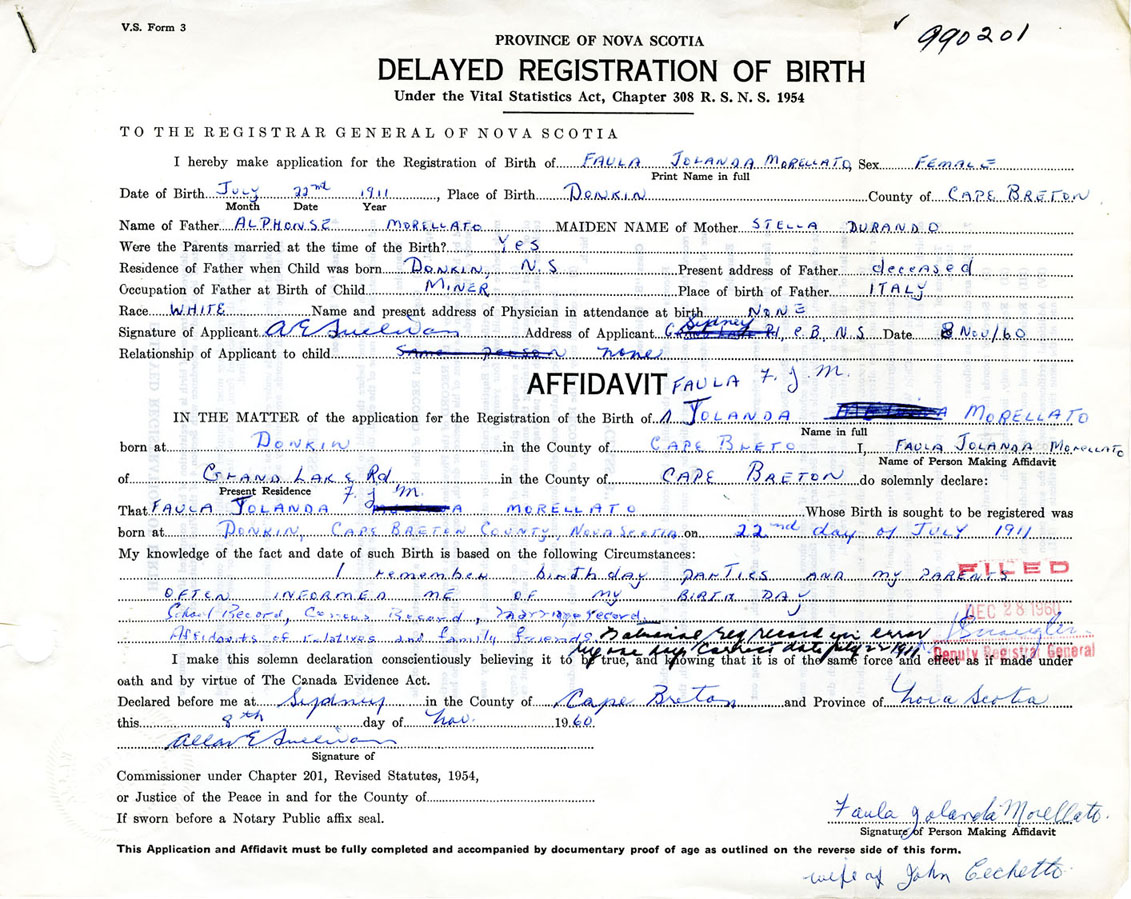 V.S. Form 3
990201
PROVINCE OF NOVA SCOTIA
DELAYED REGISTRATION OF BIRTH
Under the Vital Statistics Act, Chapter 308 R. S. N. S. 1954
TO THE REGISTRAR GENERAL OF NOVA SCOTIA
I hereby make application for the Registration of Birth of FAULA JOLANDA MORELLATO, Sex FEMALE
Print Name in full
Date of Birth JULY 22nd 1911, Place of Birth DONKIN County of CAPE BRETON
Month Date Year
Name of Father ALPHONSE MORELLATO MAIDEN NAME of Mother STELLA DURANDO
Were the Parents married at the time of the Birth? Yes
Residence of Father when Child was born DONKIN, N.S Present address of Father deceased
Occupation of Father at Birth of Child MINER Place of birth of Father ITALY
Race WHITE Name and present address of Physician in attendance at birth NONE
Signature of Applicant A E Sullivan Address of Applicant Sydney, C.B., N.S. Date 8 Nov/60
Relationship of Applicant to child Same person none
AFFIDAVIT FAULA F. J. M.
IN THE MATTER of the application for the Registration of the Birth of JOLANDA MORELLATO
Name in full
born at DONKIN in the County of CAPE BRETO I, FAULA JOLANDA MORELLATO
Name of Person Making Affidavit
of GRAND LAKE Rd, in the County of CAPE BRETON do solemnly declare:
Present Residence F. J. M.
That FAULA JOLANDA MORELLATO Whose Birth is sought to be registered was
born at DONKIN, CAPE BRETON COUNTY, NOVA SCOTIA on 22nd day of JULY 1911
My knowledge of the fact and date of such Birth is based on the following Circumstances:
I remember birthday PARTIES AND my PARENTS
OFTEN INFORMED ME OF MY BIRTH DAY
FILED
School Record, Census Record, Marriage record,
DEC 28 1960
Affidavits of relatives and family friends. National reg record in error
by one day. Correct date July 22 1911.
Deputy Registrar General
I make this solemn declaration conscientiously believing it to be true, and knowing that it is of the same force and effect as if made under
oath and by virtue of The Canada Evidence Act.
Declared before me at Sydney in the County of Cape Breton and Province of Nova Scotia
this 8th day of Nov. 1960
Allan E Sullivan
Signature of
Commissioner under Chapter 201, Revised Statutes, 1954,
or Justice of the Peace in and for the County of
If sworn before a Notary Public affix seal.
Faula Jolanda Morellato.
Signature of Person Making Affidavit
This Application and Affidavit must be fully completed and accompanied by documentary proof of age as outlined on the reverse side of this form.
wife of John Cechetto